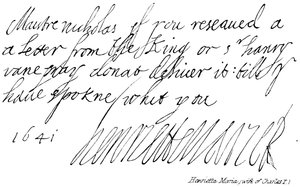 Maistre nicholas if you reseaued a
a letter from the King or sr hanry
vane may donat deliuer it: till y
haue spokne whit you
1641
Henriette Marie R.
Henrietta Maria, wife of Charles I.